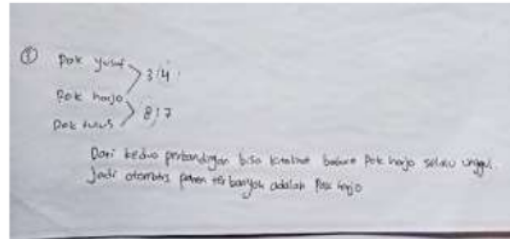 ① Pak yusuf
3:4
Pak harjo
8:7
Pak kuus
Dari kedua perbandingan bisa bahwa Pak harjo selalu unggul.
Jadi otomatis panen terbanyak adalah Pak harjo